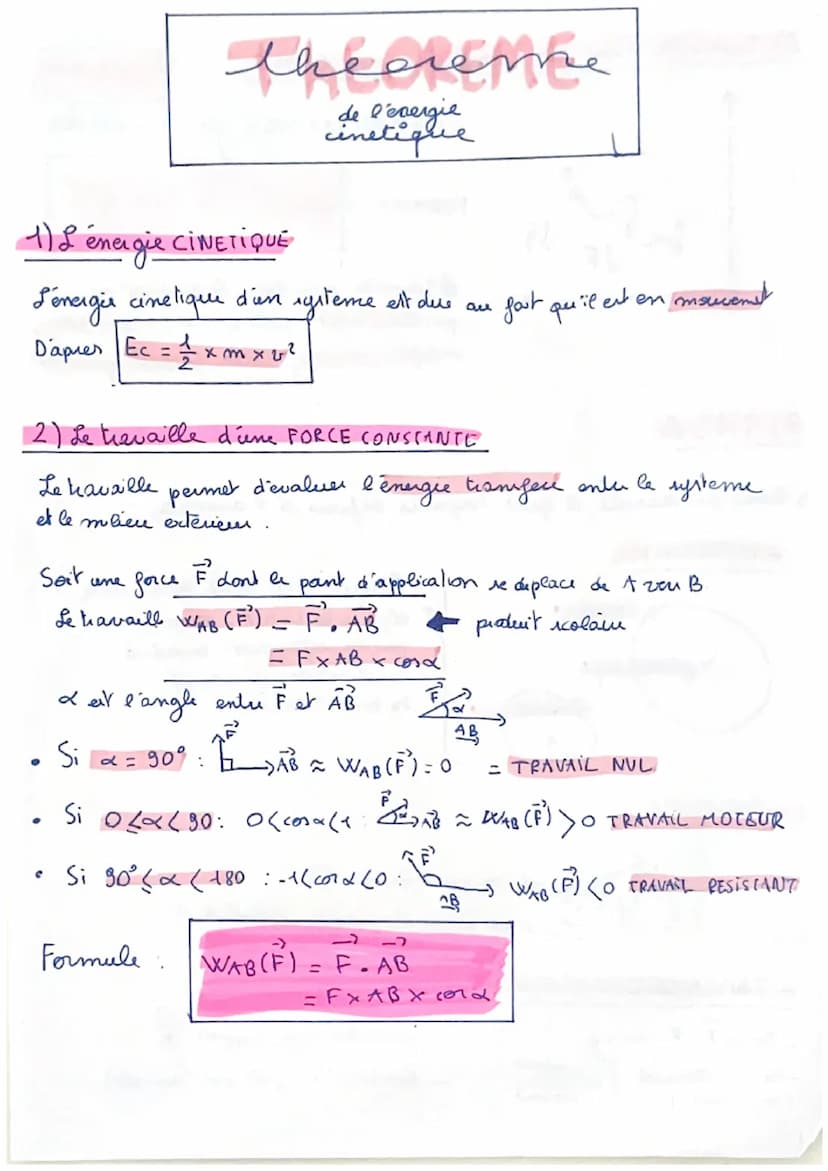 THEOREME
theoreme
de l'énergie
cinetique
1) L'énergie CINETIQUE
L'énergie cinetique d'un systeme est due au fait qu'il est en mouvement
D'apres Ec = 1/2 × m × v²
2) Le travaille d'une FORCE CONSTANTE
Le travaille permet d'evaluer l'énergie transferé entre le systeme
et le milieu extérieur.
Soit une force F⃗ dont le point d'application se deplace de A vers B
Le travaille W_AB(F⃗) = F⃗ . AB⃗ ← produit scolaire
= F × AB × cosα
α est l'angle entre F⃗ et AB⃗ F⃗ α AB⃗
• Si α = 90° : F⃗ AB⃗ ≈ W_AB(F⃗) = 0 = TRAVAIL NUL
• Si 0 ≤ α < 90 : 0 < cosα < 1 : F⃗ α AB⃗ ≈ W_AB(F⃗) > 0 TRAVAIL MOTEUR
• Si 90° ≤ α < 180 : -1 < cosα < 0 : F⃗ AB⃗ W_AB(F⃗) < 0 TRAVAIL RESISTANT
Formule : W_AB(F⃗) = F⃗ . AB⃗
= F × AB × cosα